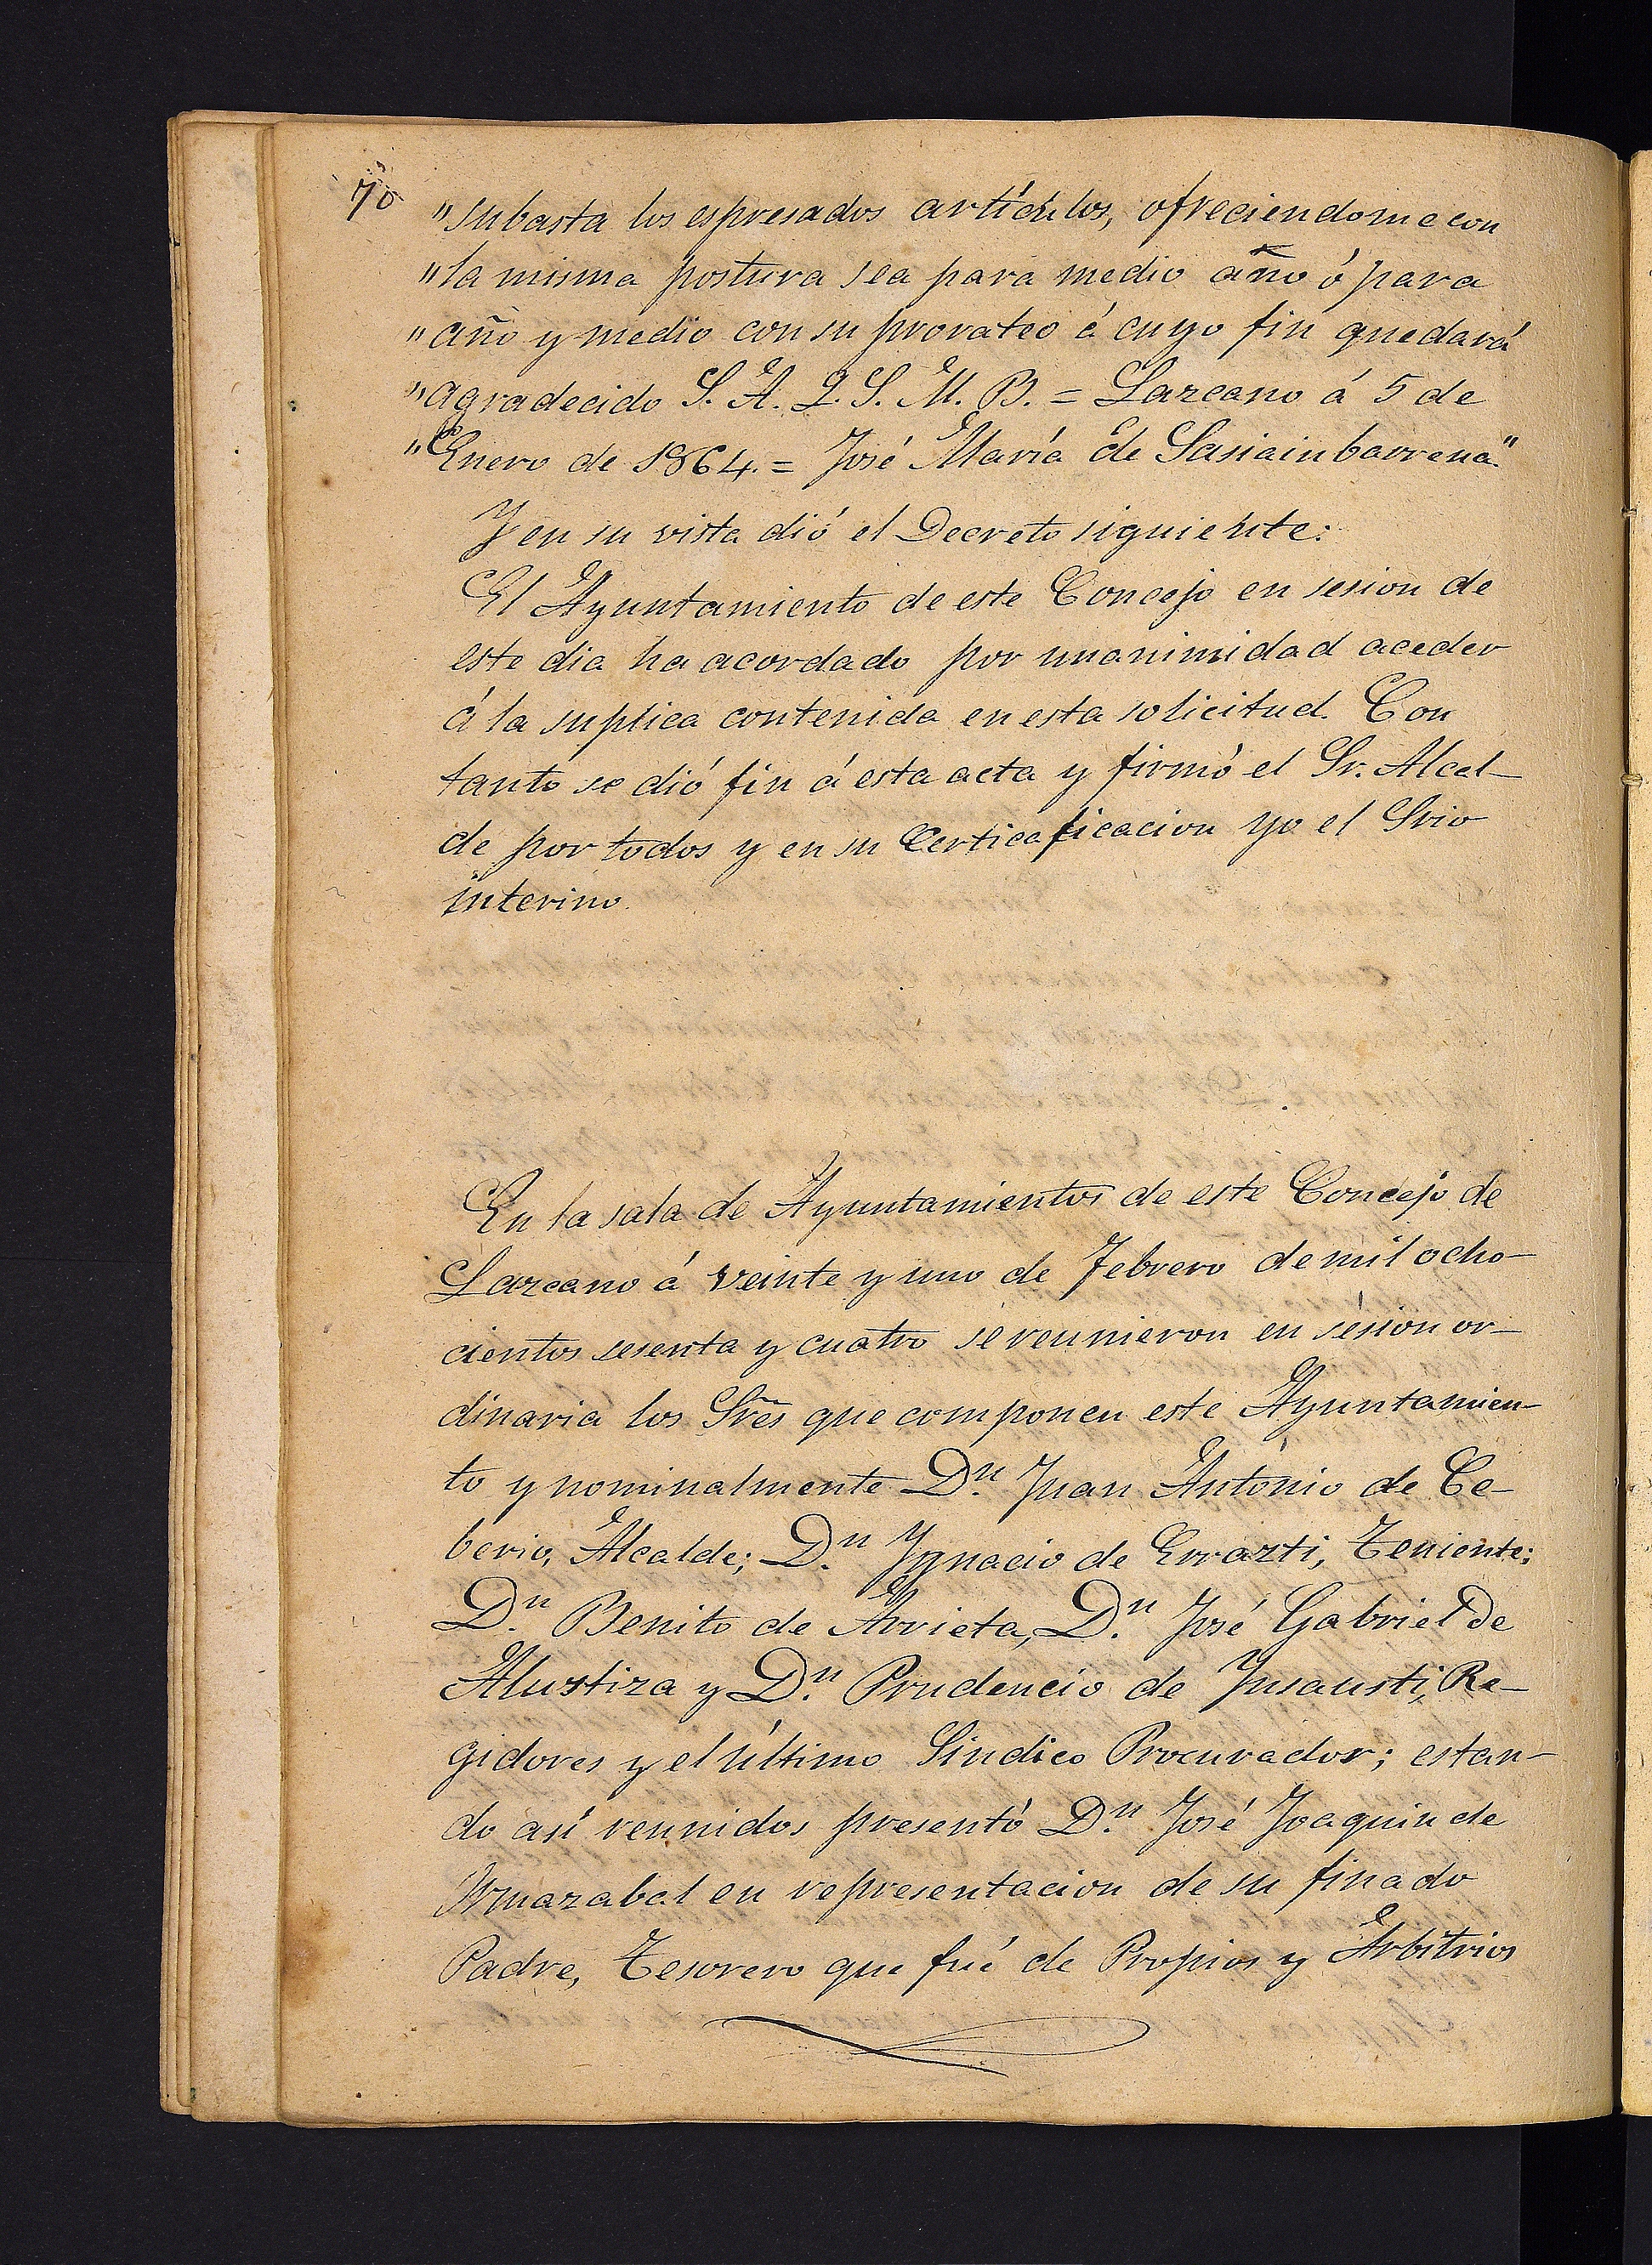 70
"subasta los espresados artículos, ofreciendome con
"la misma postura sea para medio año ó para
"año y medio con su prorateo á cuyo fin quedará
"agradecido S. A. Q. S. M. B. = Lazcano á 5 de
"Enero de 1864. = José María de Sasiainbarrena."
Y en su vista dió el Decreto siguiente:
El Ayuntamiento de este Concejo en sesion de
este dia ha acordado por unanimidad aceder
á la suplica contenida en esta solicitud. Con
tanto se dió fin á esta acta y firmó el Sr. Alcal-
de por todos y en su Certicaficacion yo el Srio
interino.
En la sala de Ayuntamientos de este Concejo de
Lazcano á veinte y uno de Febrero de mil ocho-
cientos sesenta y cuatro se reunieron en sesion or-
dinaria los Sres que componen este Ayuntamien-
to y nominalmente Dn. Juan Antonio de Ce-
berio, Alcalde; Dn. Ygnacio de Errazti, Teniente;
Dn. Benito de Arrieta, Dn. José Gabriel de
Alustiza y Dn. Prudencio de Insausti, Re-
gidores y el último Sindico Procurador; estan-
do así reunidos presentó Dn. José Joaquin de
Armazabal en representacion de su finado
Padre, Tesorero que fué de Propios y Arbitrios